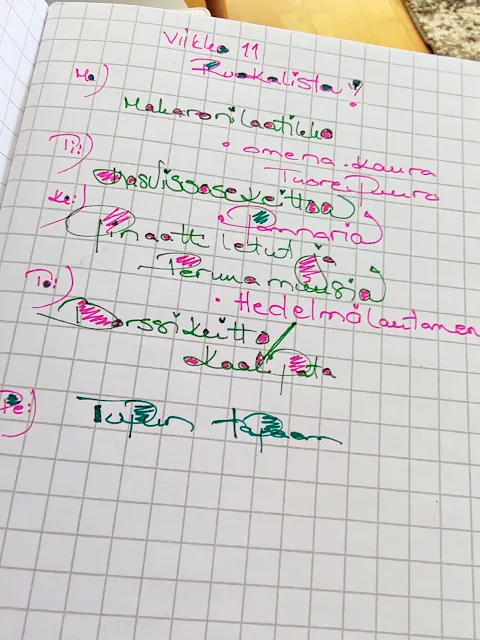 Viikko 11
Ruokalista!
Ma)
Makaronilaatikko
• omena-kaura
Tuorepuuro
Ti:)
Kasvissosekeittoa
• Pannaria
Ke:)
Pinaatti letut ja
Perunamuusia
• Hedelmälautanen
To:)
Borssikeitto
Kaalipata
Pe:)
Tupun tapaan